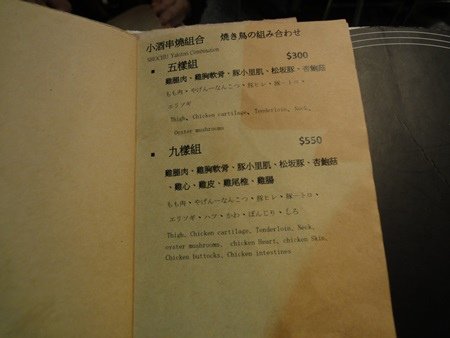 小酒串燒組合 焼き鳥の組み合わせ
SHOCHU Yakitori Combination
▪ 五樣組 $300
雞腿肉、雞胸軟骨、豚小里肌、松坂豚、杏鮑菇
もも肉・やげんーなんこつ・豚ヒレ・豚ートロ・
エリンギ
Thigh, Chicken cartilage, Tenderloin, Neck,
Oyster mushrooms
▪ 九樣組 $550
雞腿肉、雞胸軟骨、豚小里肌、松坂豚、杏鮑菇
、雞心、雞皮、雞尾椎、雞腸
もも肉・やげんーなんこつ・豚ヒレ・豚ートロ・
エリンギ・ハツ・かわ・ぼんじり・しろ
Thigh, Chicken cartilage, Tenderloin, Neck,
oyster mushrooms, chicken Heart, chicken Skin,
Chicken buttocks, Chicken intestines